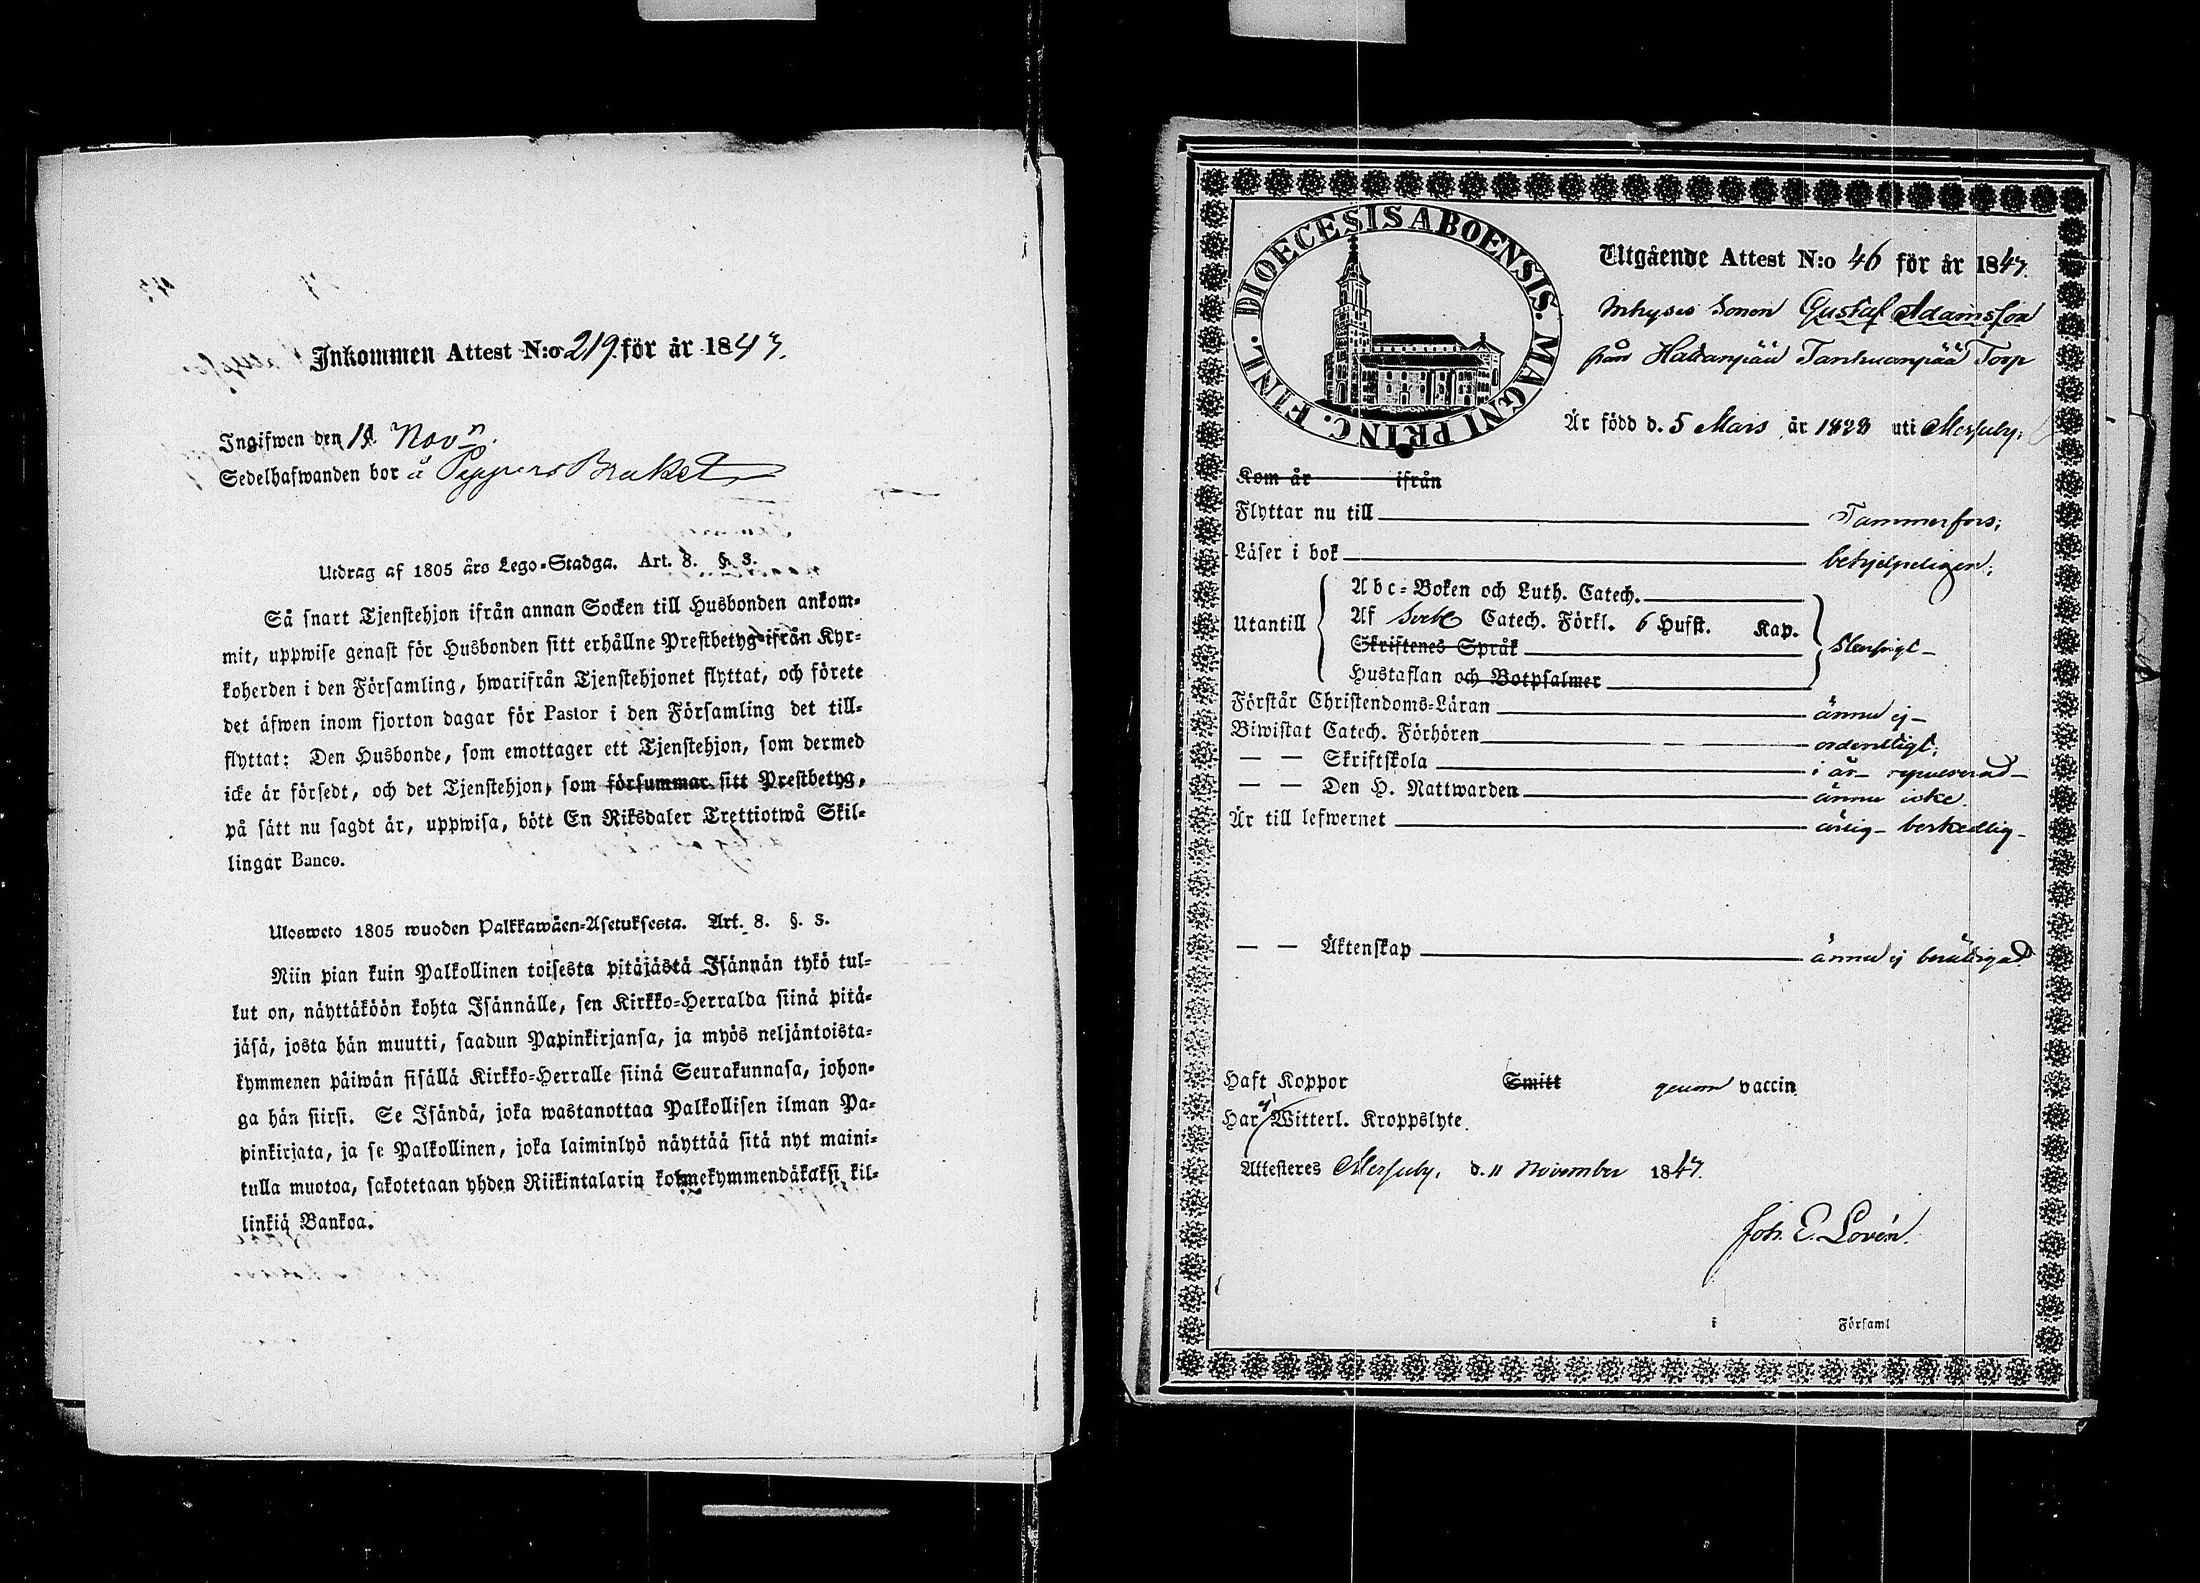 Inkommen Attest N:o 219 för år 1847.
Ingifwen den 11 Nov:n.
Sedelhafwanden bor å Pyynes Braket
Utdrag af 1805 års Lego-Stadga. Art. 8. §. 3.
Så snart Tjenstehjon ifrån annan Socken till Husbonden ankom-
mit, uppwise genast för Husbonden sitt erhållne Prestbetyg ifrån Kyr-
koherden i den Församling, hwarifrån Tjenstehjonet flyttat, och förete
det äfwen inom fjorton dagar för Pastor i den Församling det till-
flyttat: Den Husbonde, som emottager ett Tjenstehjon, som dermed
icke är försedt, och det Tjenstehjon, som försummar sitt Prestbetyg,
på sätt nu sagdt är, uppwisa, böte En Riksdaler Trettiotwå Skil-
lingar Banco.
Ulosweto 1805 wuoden Palkkawäen-Asetuksesta. Art. 8. §. 3.
Niin pian kuin Palkollinen toisesta pitäjästä Isännän tykö tul-
lut on, näyttäköön kohta Isännälle, sen Kirkko-Herralda siinä pitä-
jäsä, josta hän muutti, saadun Papinkirjansa, ja myös neljäntoista-
kymmenen päiwän sisällä Kirkko-Herralle siinä Seurakunnasa, johon-
ga hän siirsi. Se Isändä, joka wastanottaa Palkollisen ilman Pa-
pinkirjata, ja se Palkollinen, joka laiminlyö näyttää sitä nyt maini-
tulla muotoa, sakotetaan yhden Riikintalarin kolmekymmendäkaksi kil-
linkiä Bankoa.
DIOECESIS ABOENSIS. MAGNI PRINC. FINL.
Utgående Attest N:o 46 för år 1847.
Inhyses Sonen Gustaf Adamsson
från Hatanpää Tanhuanpää Torp
Är född d. 5 Mars år 1828 uti Messuby.
Kom år ifrån
Flyttar nu till Tammerfors;
Läser i bok behjelpeligen;
Abc-Boken och Luth. Catech.
Utantill Af Catech. Förkl. 6 Hufst. Kap.
Skriftenes Språk
Hustaflan och Botpsalmer
Förstår Christendoms-Läran ännu ej
Biwistat Catech. Förhören ordentligt;
— — Skriftskola i år
— — Den H. Nattwarden ännu icke.
Är till lefwernet ärlig beskedlig
— — Äktenskap ännu ej berättigad
Haft Koppor Smitt genom vaccin
Har ej Witterl. Kroppslyte.
Attesteres Messuby, d. 11 November 1847.
Joh. E. Lovén.
i Församl